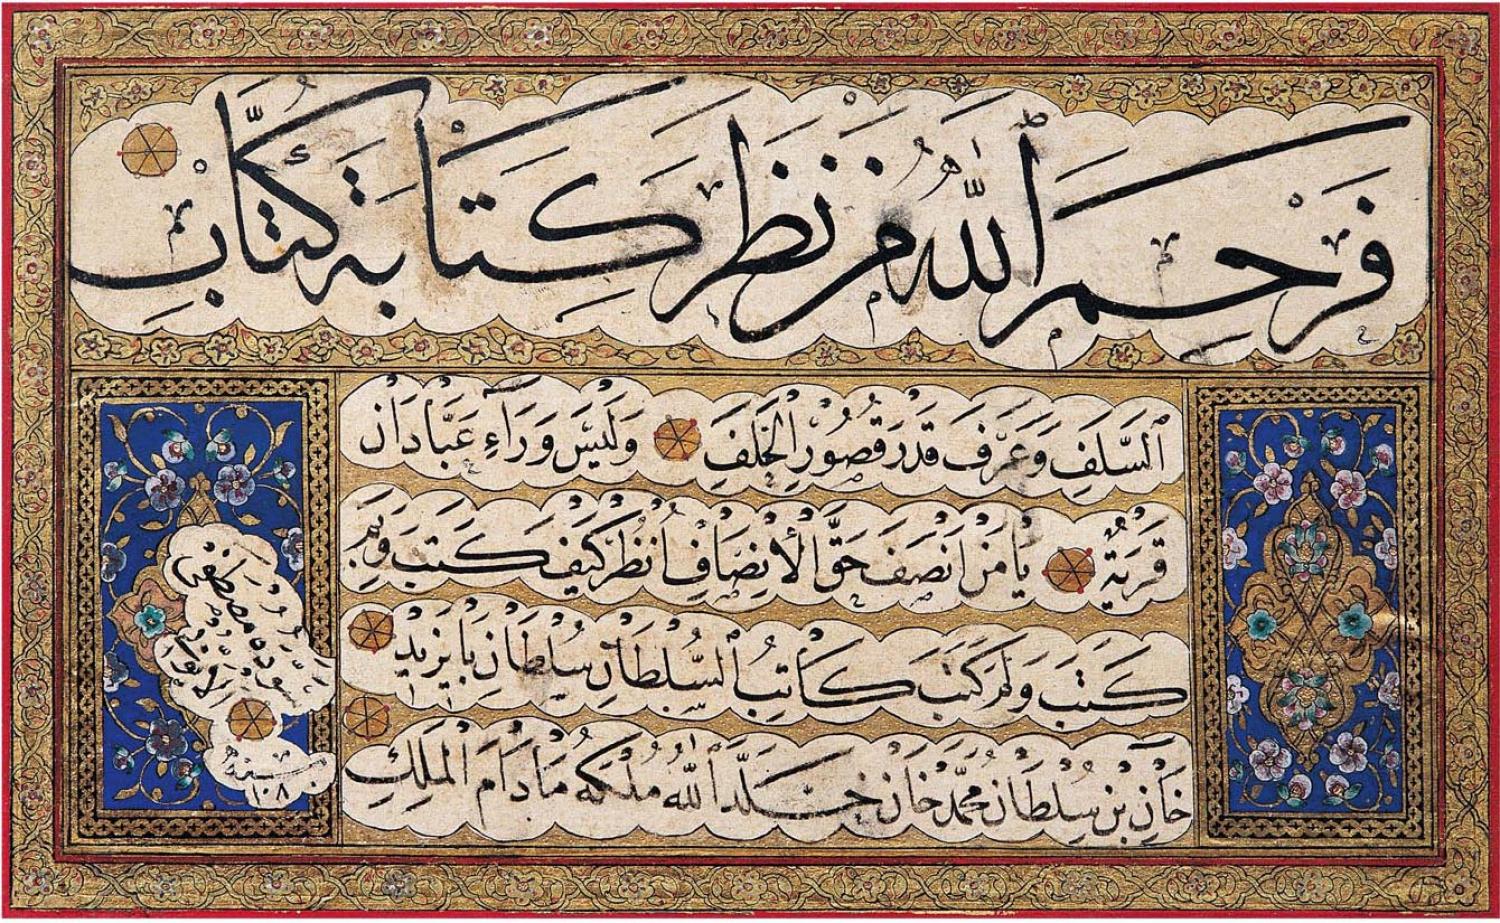 فَرَحِمَ اللّٰهُ مَنْ نَظَرَ كِتَابَةَ كُتَّابِ
السَّلَفِ وَعَرَفَ قَدْرَ قُصُورِ الْخَلَفِ وَلَيْسَ وَرَاءِ عَبَّادَانَ
قَرْيَةٌ يَا مَنْ اَنْصَفَ حَقَّ الْاِنْصَافِ اُنْظُرْ كَيْفَ كَتَبَ وَبِمَ
كَتَبَ وَلِمَ كَتَبَ كَاتِبُ السُّلْطَانِ سُلْطَانْ بَايَزِيدْ
خَانْ بِنْ سُلْطَانْ مُحَمَّدْ خَانْ خَلَّدَ اللّٰهُ مُلْكَهُ مَادَامَ الْمَلِكِ
مصطفى
سنة
١٠٨